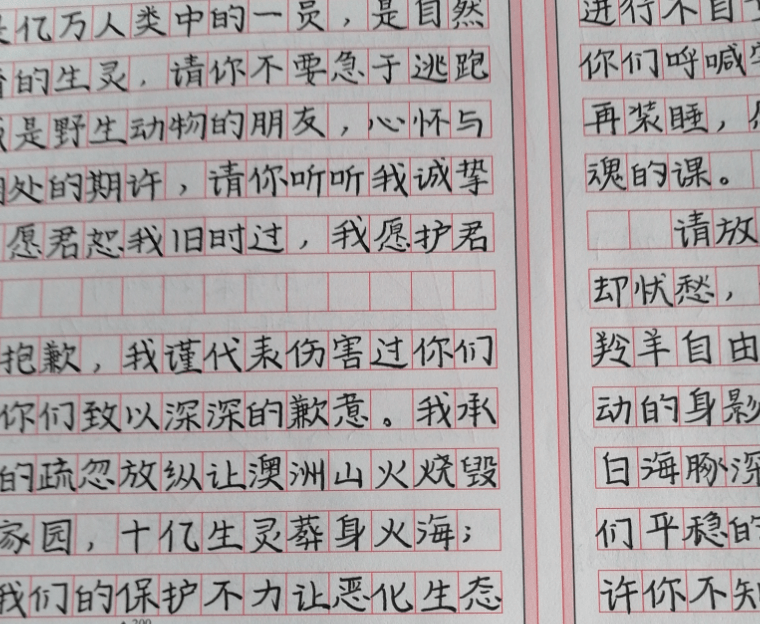 亿万人类中的一员，是自然
的生灵，请你不要急于逃跑
是野生动物的朋友，心怀与
处的期许，请你听听我诚挚
愿君恕我旧时过，我愿护君
抱歉，我谨代表伤害过你们
你们致以深深的歉意。我承
的疏忽放纵让澳洲山火烧毁
家园，十亿生灵葬身火海；
我们的保护不力让恶化生态
200
进行不自
你们呼喊
再装睡，
魂的课。
请放
却忧愁，
羚羊自由
动的身影
白海豚深
们平稳的
许你不知